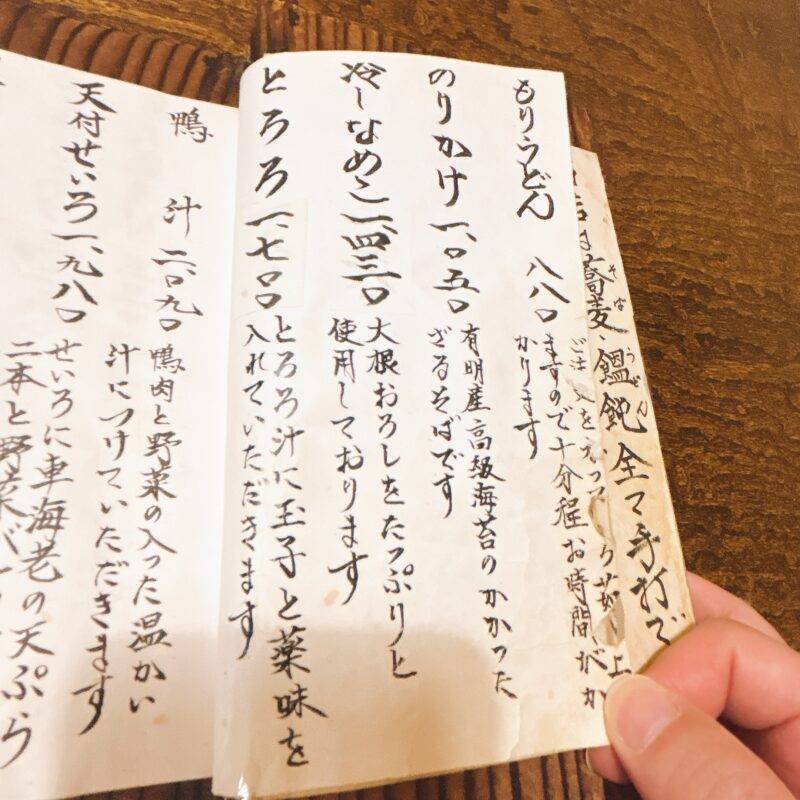 蕎麦、饂飩全て手打で
そば うどん
もりうどん 八八〇
ますので十分程お時間がか
かります
のりかけ 一、〇五〇
有明産高級海苔のかかった
ざるそばです
冷しなめこ 一、四三〇
大根おろしをたっぷりと
使用しております
とろろ 一、七〇〇
とろろ汁に玉子と薬味を
入れていただきます
鴨汁 二、〇九〇
鴨肉と野菜の入った温かい
汁につけていただきます
天付せいろ 一、九八〇
せいろに車海老の天ぷら
二本と野菜